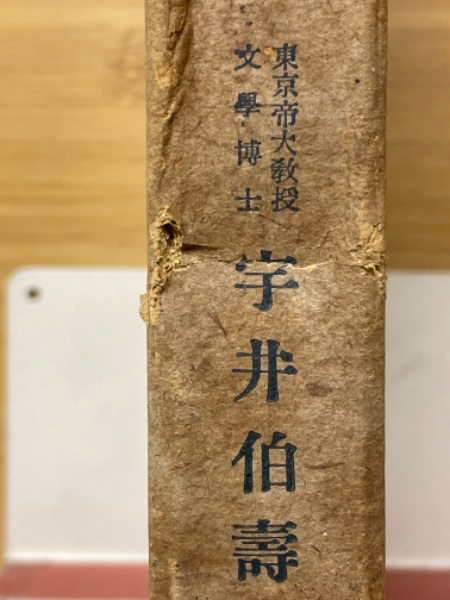 東京帝大教授
文學博士
宇井伯壽